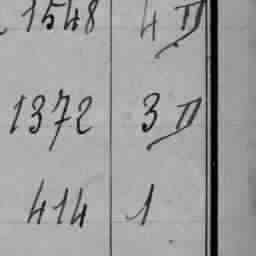 1548 4 II
1372 3 II
414 1